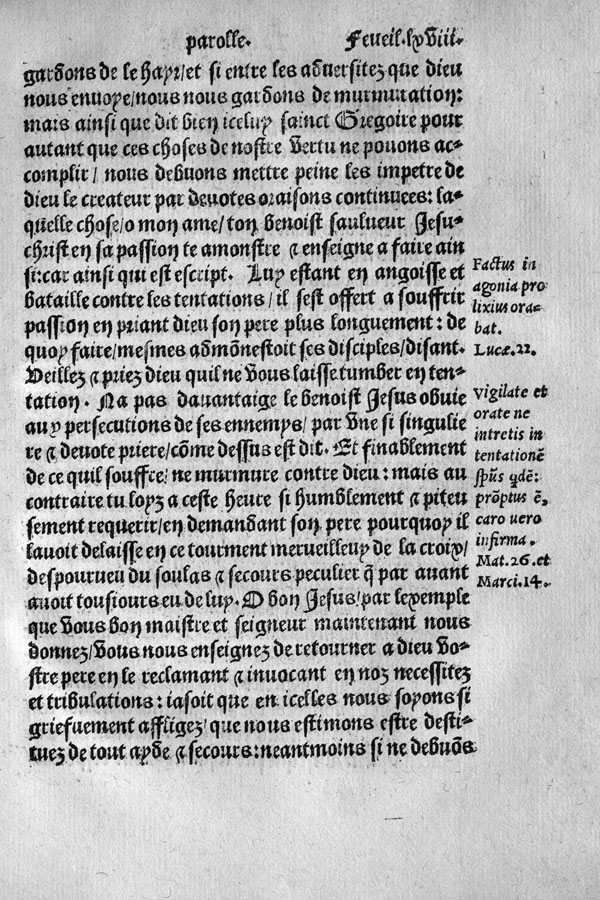 parolle. Feueil.lxviii.
gardons de le hayr/et si entre les aduersitez que dieu
nous enuoye/nous nous gardons de murmuration:
mais ainsi que dit bien iceluy sainct Gregoire pour
autant que ces choses de nostre vertu ne pouons ac-
complir/ nous debuons mettre peine les impetre de
dieu le createur par deuotes oraisons continues: la-
quelle chose/o mon ame/ton benoist saulueur Jesu-
christ en sa passion te amonstre & enseigne a faire ain
si:car ainsi qui est escript. Luy estant en angoisse et
bataille contre les tentations/il sest offert a souffrir
passion en priant dieu son pere plus longuement: de
quoy faire/mesmes admõnestoit ses disciples/disant.
Veillez & priez dieu quil ne vous laisse tumber en ten-
tation. Na pas dauantaige le benoist Jesus obuie
aux persecutions de ses ennemys/ par vne si singulie
re & deuote priere/cõme dessus est dit. Et finablement
de ce quil souffre/ne murmure contre dieu: mais au
contraire tu loyz a ceste heure si humblement & piteu
sement requerir/en demandant son pere pourquoy il
lauoit delaisse en ce tourment merueilleux de la croix/
despourueu du soulas & secours peculier q̃ par auant
auoit tousiours eu de luy. O bon Jesus/par lexemple
que vous bon maistre et seigneur maintenant nous
donnez/vous nous enseignez de retourner a dieu vo-
stre pere en le reclamant & inuocant en noz necessitez
et tribulations: iasoit que en icelles nous soyons si
griefuement affligez/que nous estimons estre desti-
tuez de tout ayde & secours:neantmoins si ne debuõs
Factus in
agonia pro
lixius ora-
bat.
Lucæ.22.
Vigilate et
orate ne
intretis in
tentationẽ
spũs qdẽ:
prõptus ẽ,
caro uero
infirma.
Mat.26.et
Marci.14.